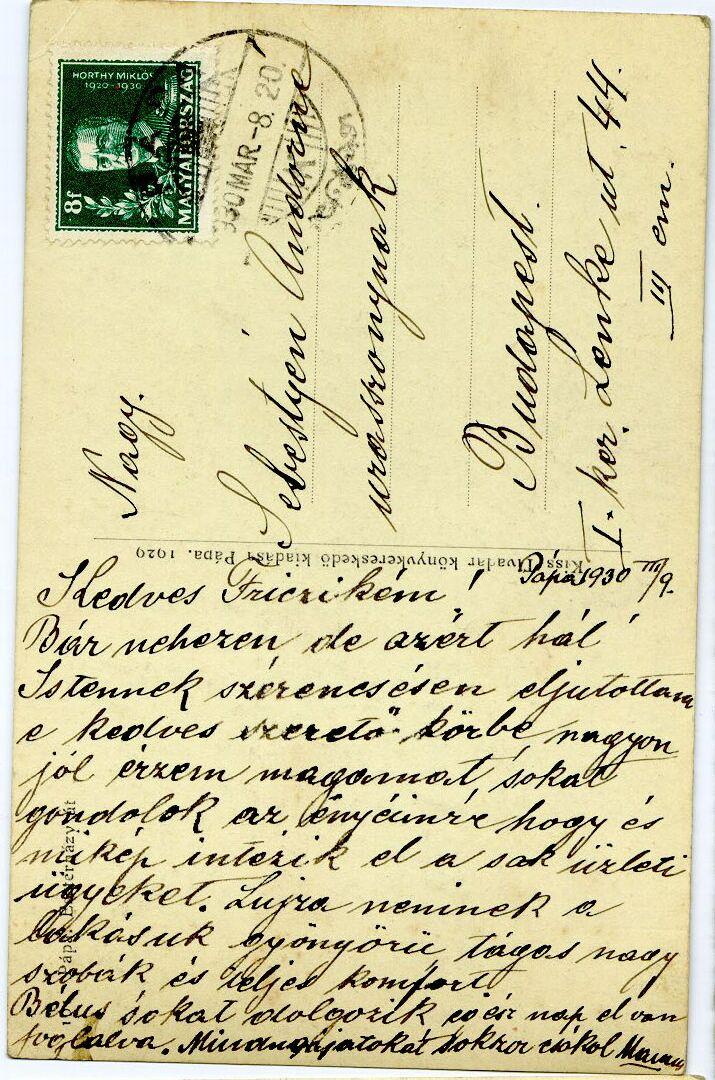 HORTHY MIKLÓS
1920-1930
MAGYARORSZÁG
8f
930 MÁR.-8. 20
Nagy.
Sebestyén Andorné
urasszonynak
Budapest.
I. ker. Lenke út. 44.
III em.
Kiss Tivadar könyvkereskedő kiadása Pápa. 1929
Pápa 1930 III/9.
Kedves Friczikém!
Bár nehezen de azért hál'
Istennek szérencsésen eljutottam
e kedves szerető körbe, nagyon
jól érzem magamat, sokat
gondolok az ényéimre hogy és
mikép intézik el a sok üzleti
ügyeket. Lujza néninek a
lakásuk gyönyörű tágas nagy
szobák és teljes komfort
Bélus sokat dolgozik egész nap el van
foglalva. Mindnyájatokat sokszor csókol Mama
Pápa Eszterházy út